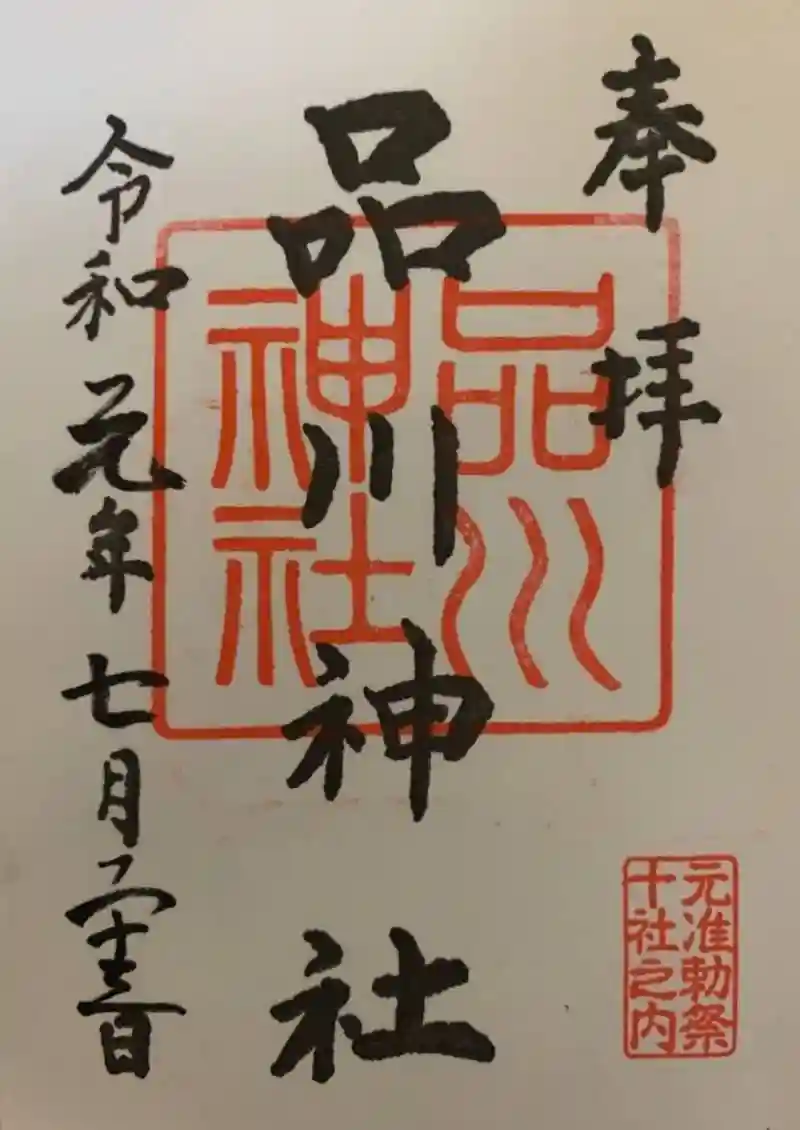 奉拝
品川神社
品川
神社
令和元年七月二十一日
元准勅祭
十社之内